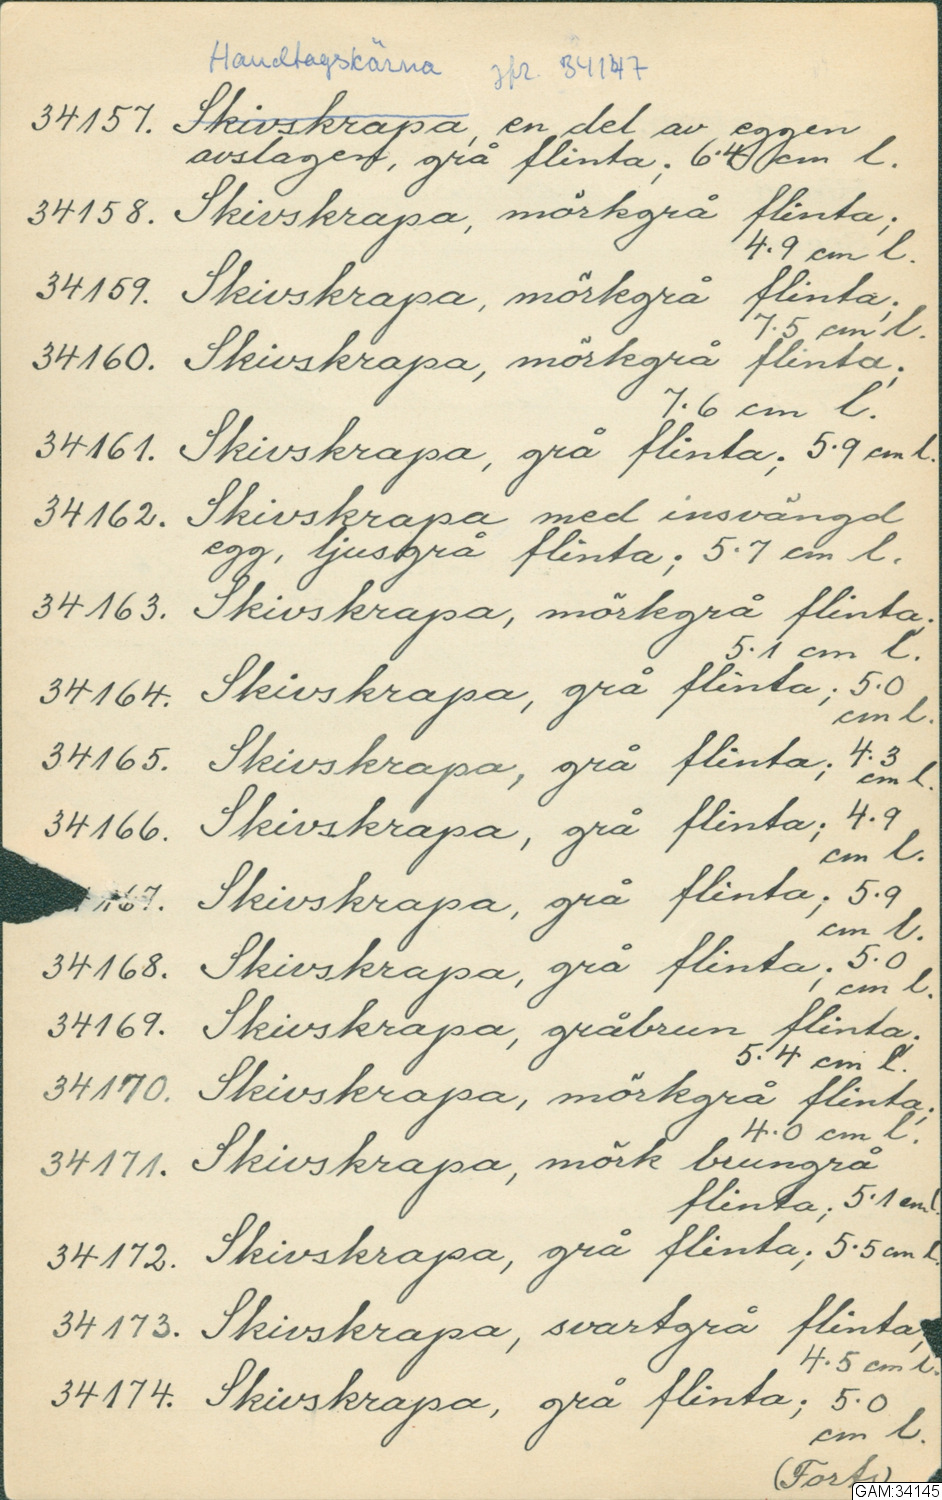 Handtagskärna jfr. 34147
34157. Skivskrapa, en del av eggen
avslagen, grå flinta; 6.4 cm l.
34158. Skivskrapa, mörkgrå flinta;
4.9 cm l.
34159. Skivskrapa, mörkgrå flinta;
7.5 cm l.
34160. Skivskrapa, mörkgrå flinta;
7.6 cm l.
34161. Skivskrapa, grå flinta; 5.9 cm l.
34162. Skivskrapa med insvängd
egg, ljusgrå flinta; 5.7 cm l.
34163. Skivskrapa, mörkgrå flinta;
5.1 cm l.
34164. Skivskrapa, grå flinta; 5.0
cm l.
34165. Skivskrapa, grå flinta; 4.3
cm l.
34166. Skivskrapa, grå flinta; 4.9
cm l.
167. Skivskrapa, grå flinta; 5.9
cm l.
34168. Skivskrapa, grå flinta; 5.0
cm l.
34169. Skivskrapa, gråbrun flinta;
5.4 cm l.
34170. Skivskrapa, mörkgrå flinta;
4.0 cm l.
34171. Skivskrapa, mörk brungrå
flinta; 5.1 cm l.
34172. Skivskrapa, grå flinta; 5.5 cm l.
34173. Skivskrapa, svartgrå flinta;
4.5 cm l.
34174. Skivskrapa, grå flinta; 5.0
cm l.
(Forts)
GAM:34145